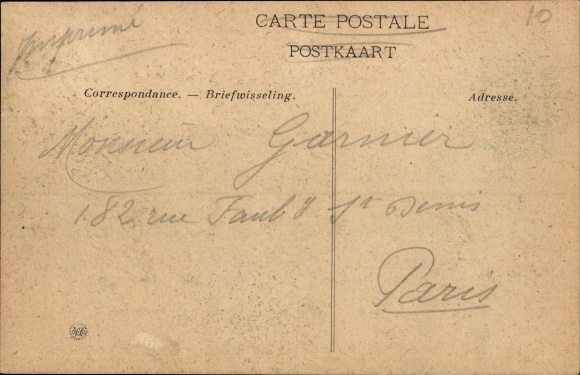 Imprimé
10
CARTE POSTALE
POSTKAART
Correspondance. — Briefwisseling.
Adresse.
Monsieur Garnier
182 rue Faubg St Denis
Paris